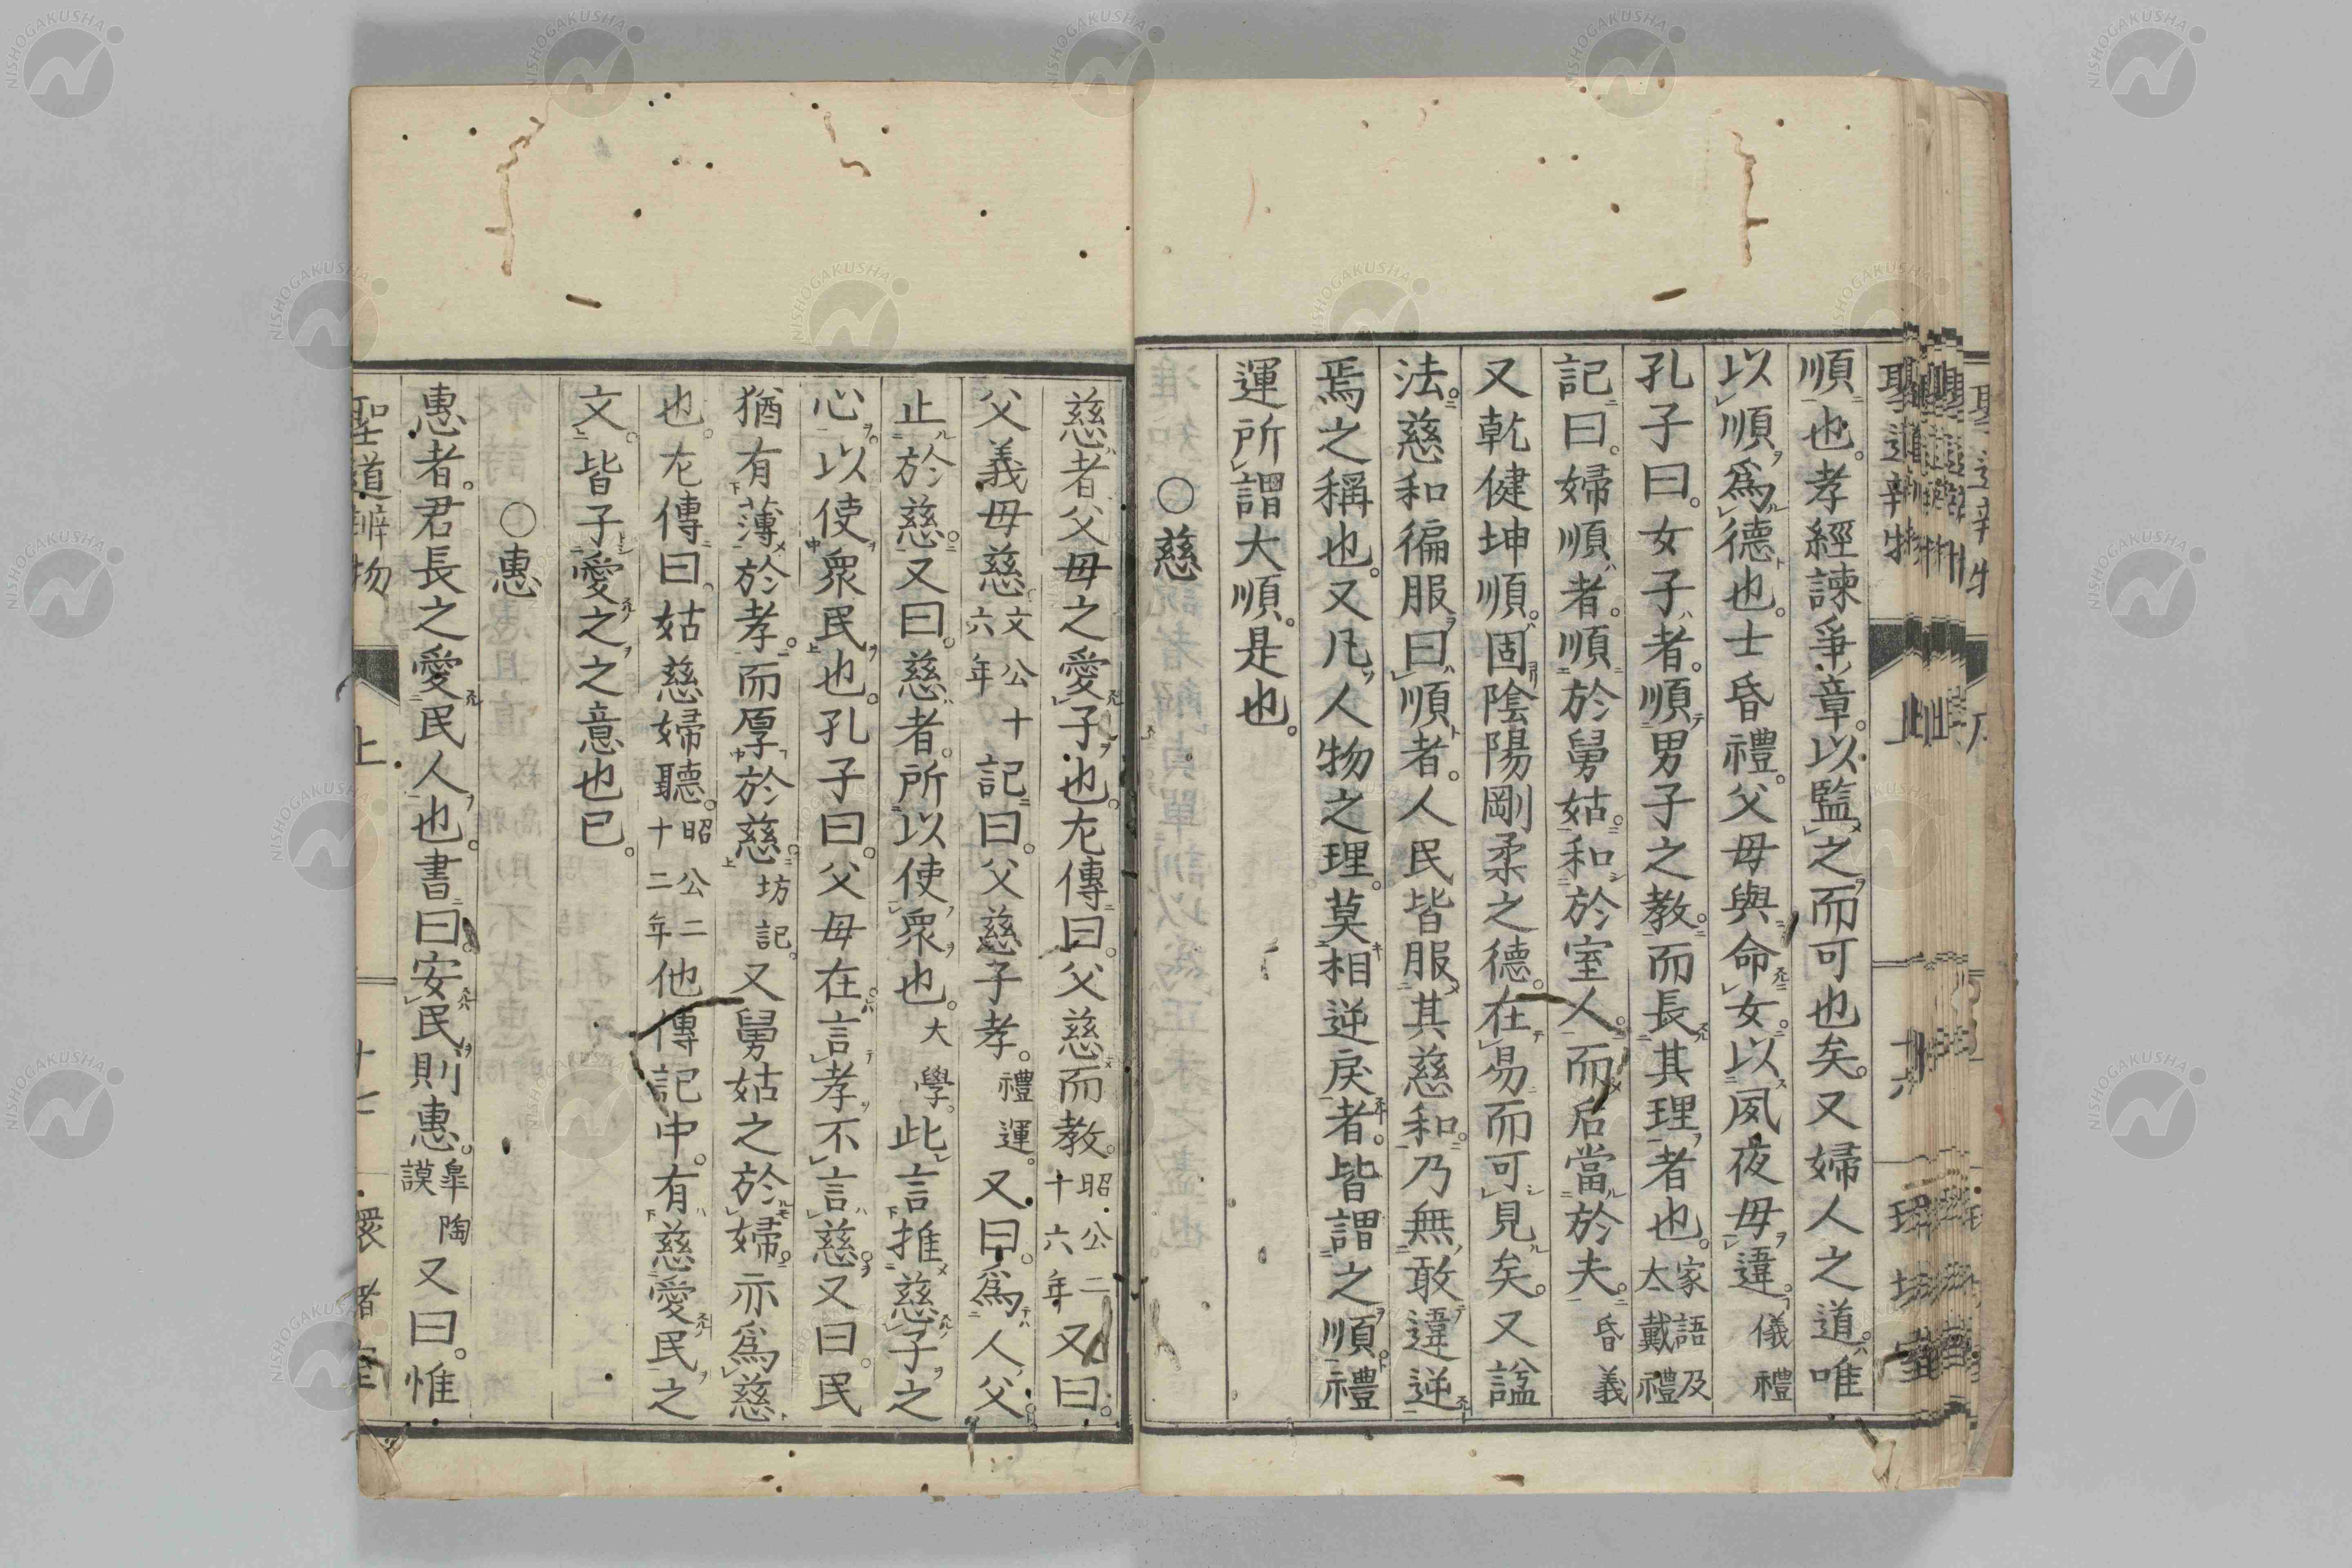 順也。孝經諫爭章。以監之而可也矣。又婦人之道。唯
以順爲德也。士昏禮。父母與命女。以夙夜毋違。儀禮
孔子曰。女子者。順男子之教。而長其理者也。家語及大戴禮
記曰。婦順者。順於舅姑。和於室人。而后當於夫。昏義
又乾健坤順。固陰陽剛柔之德。在易而可見矣。又諡
法。慈和徧服曰順者。人民皆服其慈和。乃無敢違逆
焉之稱也。又凡人物之理。莫相逆戾者。皆謂之順。禮
運所謂大順。是也。
○慈
慈者父母之愛子也。左傳曰。父慈而教。昭公二十六年又曰。
父義母慈。文公十六年記曰。父慈子孝。禮運。又曰。爲人父。
止於慈。又曰。慈者。所以使衆也。大學。此言推慈子之
心。以使衆民也。孔子曰。父母在。言孝不言慈。又曰。民
猶有薄於孝。而厚於慈。坊記。又舅姑之於婦。亦爲慈
也。左傳曰。姑慈婦聽。昭公二十二年他傳記中。有慈愛民之
文。皆子愛之之意也已。
○惠
惠者。君長之愛民人也。書曰。安民則惠。皐陶謨又曰。惟
聖道辨物 上 十七 環堵室